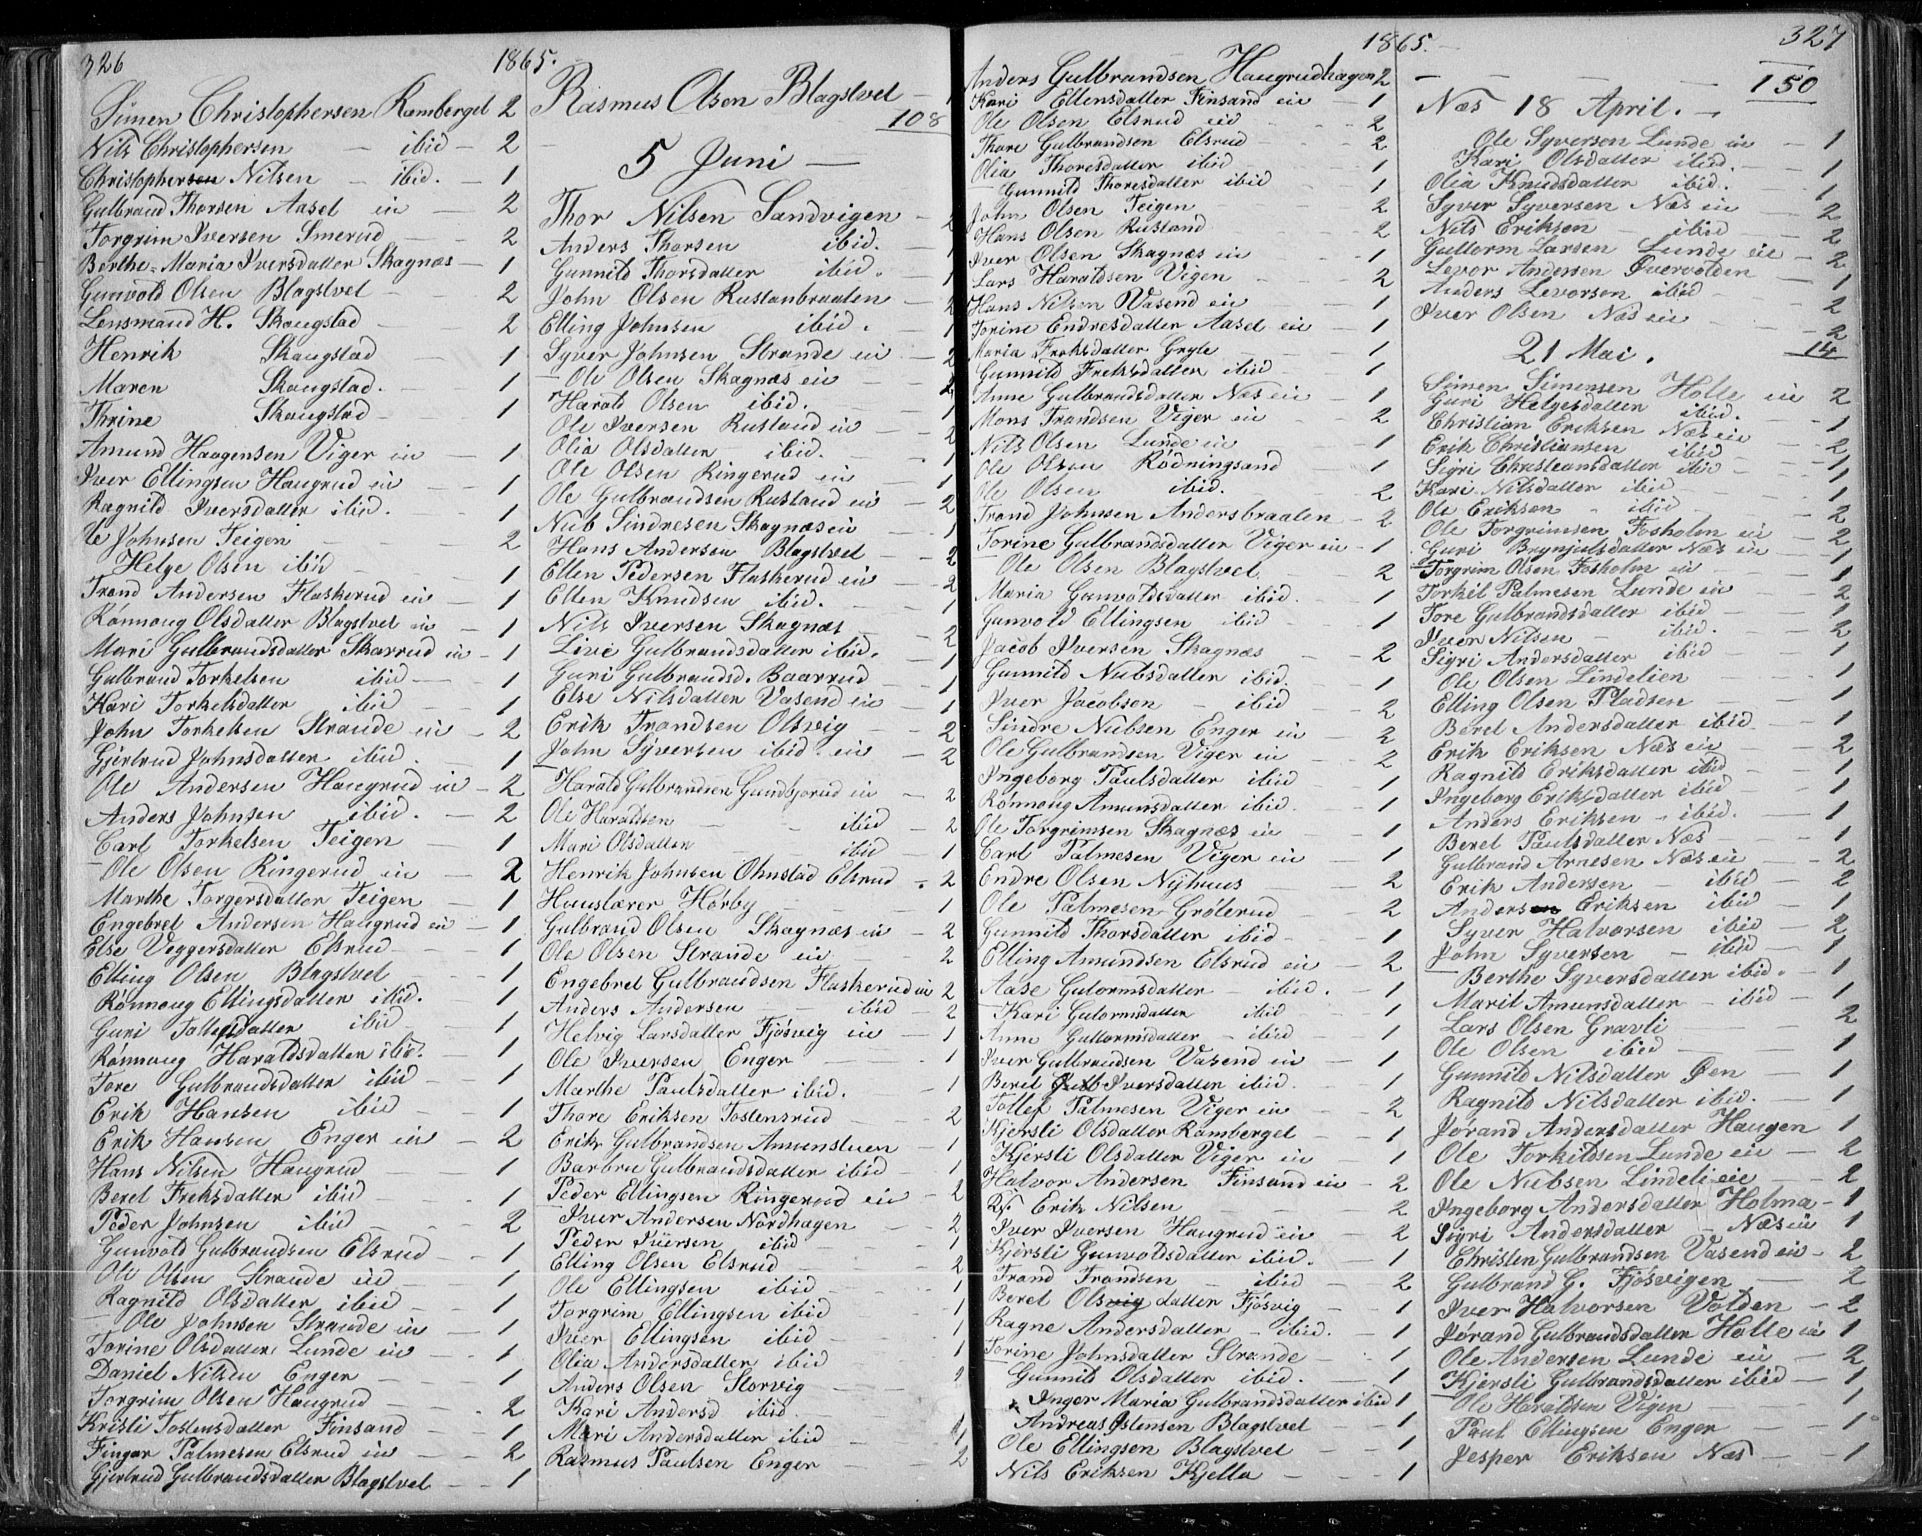 326
1865.
Simen Christophersen Ramberget 2
Nils Christophersen - ibid - 2
Christophersen Nilsen - ibid. - 1
Gulbrand Thorsen Aasel ein - 2
Torgrim Iversen Smerud - 2
Berthe Maria Iversdatter Skagnæs - 1
Gunvold Olsen Blagstvet - 2
Lensmand H. Skougstad - 2
Henrik Skougstad - 1
Maren Skougstad. - 1
Thrine Skougstad - 1
Amund Haagensen Viger ein - 1
Iver Ellingsen Haugrud ein - 1
Ragnild Iversdatter ibid. - 1
Ole Johnsen Teigen - 2
Helge Olsen ibid - 1
Trond Andersen Flaskerud ein - 1
Rønnoug Olsdatter Blagstvet ein - 1
Mari Gulbrandsdatter Skarrud ein - 1
Gulbrand Torkelsen ibid - 1
Kari Torkelsdatter ibid - 1
John Torkelsen Strande ein - 2
Gjertrud Johnsdatter ibid. 1
Ole Andersen Haugrud ein - 2
Anders Johnsen ibid. - 2
Carl Torkelsen Teigen - 1
Ole Olsen Ringerud ein - 2
Marthe Torgersdatter Teigen - 1
Engebret Andersen Haugrud ein - 1
Else Veggersdatter Elsrud - 1
Elling Olsen Blagstvet - 1
Rønnoug Ellingsdatter ibid. 1
Guri Tollefsdatter ibid - 1
Rønnoug Haraldsdatter ibid. - 1
Tore Gulbrandsdatter ibid - 1
Erik Hansen ibid - 1
Erik Hansen Enger ein - 2
Hans Nilsen Haugrud - 1
Beret Eriksdatter ibid - 1
Peder Johnsen ibid - 2
Gunvold Gulbrandsen Elsrud - 1
Ole Olsen Strande ein - 1
Ragnild Olsdatter ibid - 1
Ole Johnsen Strande ein - 1
Torine Olsdatter Lunde ein - 1
Daniel Nilsen Enger - 1
Torgrim Olsen Haugrud - 2
Kristi Tostensdatter Finsand - 1
Fingar Palmesen Elsrud ein - 2
Gjertrud Gulbrandsdatter Blagstvet - 1
Rasmus Olsen Blagstvet - 1
108
5 Juni
Thor Nilsen Sandvigen - 2
Anders Thorsen ibid. - 1
Gunnild Thorsdatter ibid. 1
John Olsen Rustanbraaten - 2
Elling Johnsen ibid. - 1
Syver Johnsen Strande ein - 2
Ole Olsen Skagnæs ein
Harald Olsen ibid. - 1
Ole Iversen Rusland ein - 2
Olia Olsdatter ibid. - 1
Ole Olsen Ringerud ein - 1
Ole Gulbrandsen Rusland ein - 2
Nub Sindresen Skagnæs ein - 1
Hans Andersen Blagstvet - 2
Ellen Pedersen Flaskerud ein - 2
Ellen Knudsen ibid. - 1
Nils Iversen Skagnæs - 2
Live Gulbrandsdatter ibid. 1
Guri Gulbrandsd. Baarrud - 1
Else Nilsdatter Vasend ein - 1
Erik Trondsen Olsvig - 2
John Syversen ibid. ein - 2
Harald Gulbrandsen Gundbjorud ein - 2
Ole Haraldsen - ibid - 2
Mari Olsdatter - ibid 1
Henrik Johnsen Ohnstad Elsrud - 2
Huuslærer Hørby - 1
Gulbrand Olsen Skagnæs ein - 2
Ole Olsen Strande ein - 2
Engebret Gulbrandsen Flaskerud ein 2
Anders Andersen - ibid - 2
Helvig Larsdatter Fjøsvig ein - 1
Ole Iversen Enger - 1
Marthe Paulsdatter ibid. - 1
Thore Eriksen Tostensrud - 2
Erik Gulbrandsen Amunstuen - 1
Barbru Gulbrandsdatter ibid - 1
Peder Ellingsen Ringerud ein - 2
Iver Andersen Nordhagen - 2
Peder Iversen ibid - 1
Elling Olsen Elsrud - 2
Ole Ellingsen ibid - 1
Torgrim Ellingsen ibid - 1
Iver Ellingsen ibid - 1
Olia Andersdatter ibid - 1
Anders Olsen Storvig - 2
Kari Andersd ibid
Mari Andersdatter ibid - 1
Rasmus Paulsen Enger - 2
1865.
327
Anders Gulbrandsen Haugrudhagen 2
Kari Ellensdatter Finsand ein - 1
Ole Olsen Elsrud eid - 2
Thore Gulbrandsen Elsrud - 2
Olia Thoresdatter ibid - 1
Gunnild Thoresdatter ibid 1
John Olsen Teigen - 2
Hans Olsen Rusland - 2
Iver Olsen Skagnæs ein - 1
Lars Haraldsen Vigen - 2
Hans Nilsen Vasend ein - 1
Torine Endresdatter Aasel ein - 1
Maria Eriksdatter Gryte - 1
Gunnild Eriksdatter ibid - 1
Anne Gulbrandsdatter Næs ein - 1
Mons Trondsen Viger ein - 2
Nils Olsen Lunde ein - 1
Ole Olsen Rødningsand - 1
Ole Olsen ibid. - 2
Trond Johnsen Andersbraaten - 2
Torine Gulbrandsdatter Viger ein - 1
Ole Olsen Blagstvet - 2
Maria Gunvoldsdatter ibid. - 1
Gunvold Ellingsen ibid - 1
Jacob Iversen Skagnæs - 2
Gunnild Nubsdatter ibid. - 1
Iver Jacobsen - ibid 2
Sindre Nubsen Enger ein - 2
Ole Gulbrandsen Viger ein - 2
Ingeborg Paulsdatter ibid - 1
Rønnoug Amunsdatter ibid. - 1
Ole Torgrimsen Skagnæs ein - 1
Carl Palmesen Viger ein - 1
Endre Olsen Nyhuus - 2
Ole Palmesen Grøterud - 2
Gunnild Thorsdatter ibid - 1
Elling Amundsen Elsrud ein - 2
Aase Gulormsdatter - ibid. - 1
Kari Gulormsdatter ibid - 1
Anne Guttormsdatter - ibid - 1
Iver Gulbrandsen Vasend ein - 1
Beret Iversdatter ibid. - 1
Tollef Palmesen Viger ein - 2
Kjersti Olsdatter Ramberget - 1
Kjersti Olsdatter Viger ein - 1
Halvor Andersen Finsand ein - 2
Erik Nilsen - 2
Iver Iversen Haugrud ein - 2
Kjersti Gunvoldsdatter ibid. - 1
Trond Trondsen - ibid - 2
Beret Olsvig datter Fjøsvig - 1
Ragne Andersdatter - ibid. 1
Torine Johnsdatter Strande - 1
Gunnild Olsdatter ibid. - 1
Inger Maria Gulbrandsdatter ibid 1
Andreas Østensen Blagstvet 1
Ole Ellingsen Blagstvet - 1
Nils Eriksen Kjella - 1
150
Næs 18 April.
Ole Syversen Lunde ein - 1
Kari Olsdatter ibid. - 1
Olia Knudsdatter ibid. 1
Syver Syversen Næs ein - 2
Nils Eriksen - ibid - 2
Guttorm Larsen Lunde ein - 2
Levor Andersen Qvervolden 1
Anders Levorsen ibid - 2
Iver Olsen Næs ein - 2
14
21 Mai.
Simen Simensen Holte ein 2
Guri Helgesdatter ibid. - 1
Christian Eriksen Næs ein - 2
Erik Christiansen ibid - 1
Sigri Christiansdatter ibid - 1
Kari Nilsdatter ibid - 1
Ole Eriksen - ibid - 2
Ole Torgrimsen Fosholm ein - 2
Guri Brynjulsdatter Næs ein - 1
Torgrim Olsen Fosholm ein - 1
Torkil Palmesen Lunde ein - 2
Tore Gulbrandsdatter ibid - 1
Iver Nilsen ibid. - 2
Sigri Andersdatter ibid - 1
Ole Olsen Lindelien 1
Elling Olsen Pladsen - 1
Beret Andersdatter ibid - 1
Erik Eriksen Næs ein - 2
Ragnild Eriksdatter ibid - 1
Ingeborg Eriksdatter ibid - 1
Anders Eriksen - ibid. - 1
Beret Paulsdatter Næs - 1
Gulbrand Arnesen Næs ein - 2
Erik Andersen - ibid - 2
Andersen Eriksen ibid - 1
Syver Halvorsen ibid - 2
John Syversen - ibid - 1
Berthe Syversdatter ibid. - 1
Marit Amunsdatter - ibid - 1
Lars Olsen Gravli - 2
Ole Olsen ibid - 1
Gunnild Nilsdatter Øen - 1
Ragnild Nilsdatter ibid. - 1
Jørand Andersdatter Haugen 1
Ole Torkildsen Lunde ein - 2
Ole Nubsen Lindeli ein - 2
Ingeborg Andersdatter Holma - 1
Sigri Andersdatter - Næs ein 1
Christen Gulbrandsen Vasend ein - 2
Gulbrand G. Fjøsvigen - 2
Iver Halvorsen Volden - 2
Jørand Gulbrandsdatter Holte ein 1
Ole Andersen Lunde ein - 2
Kjersti Gulbrandsdatter ibid - 1
Ole Haraldsen Vigen - 1
Paul Ellingsen Enger - 1
Jesper Eriksen Næs - 1